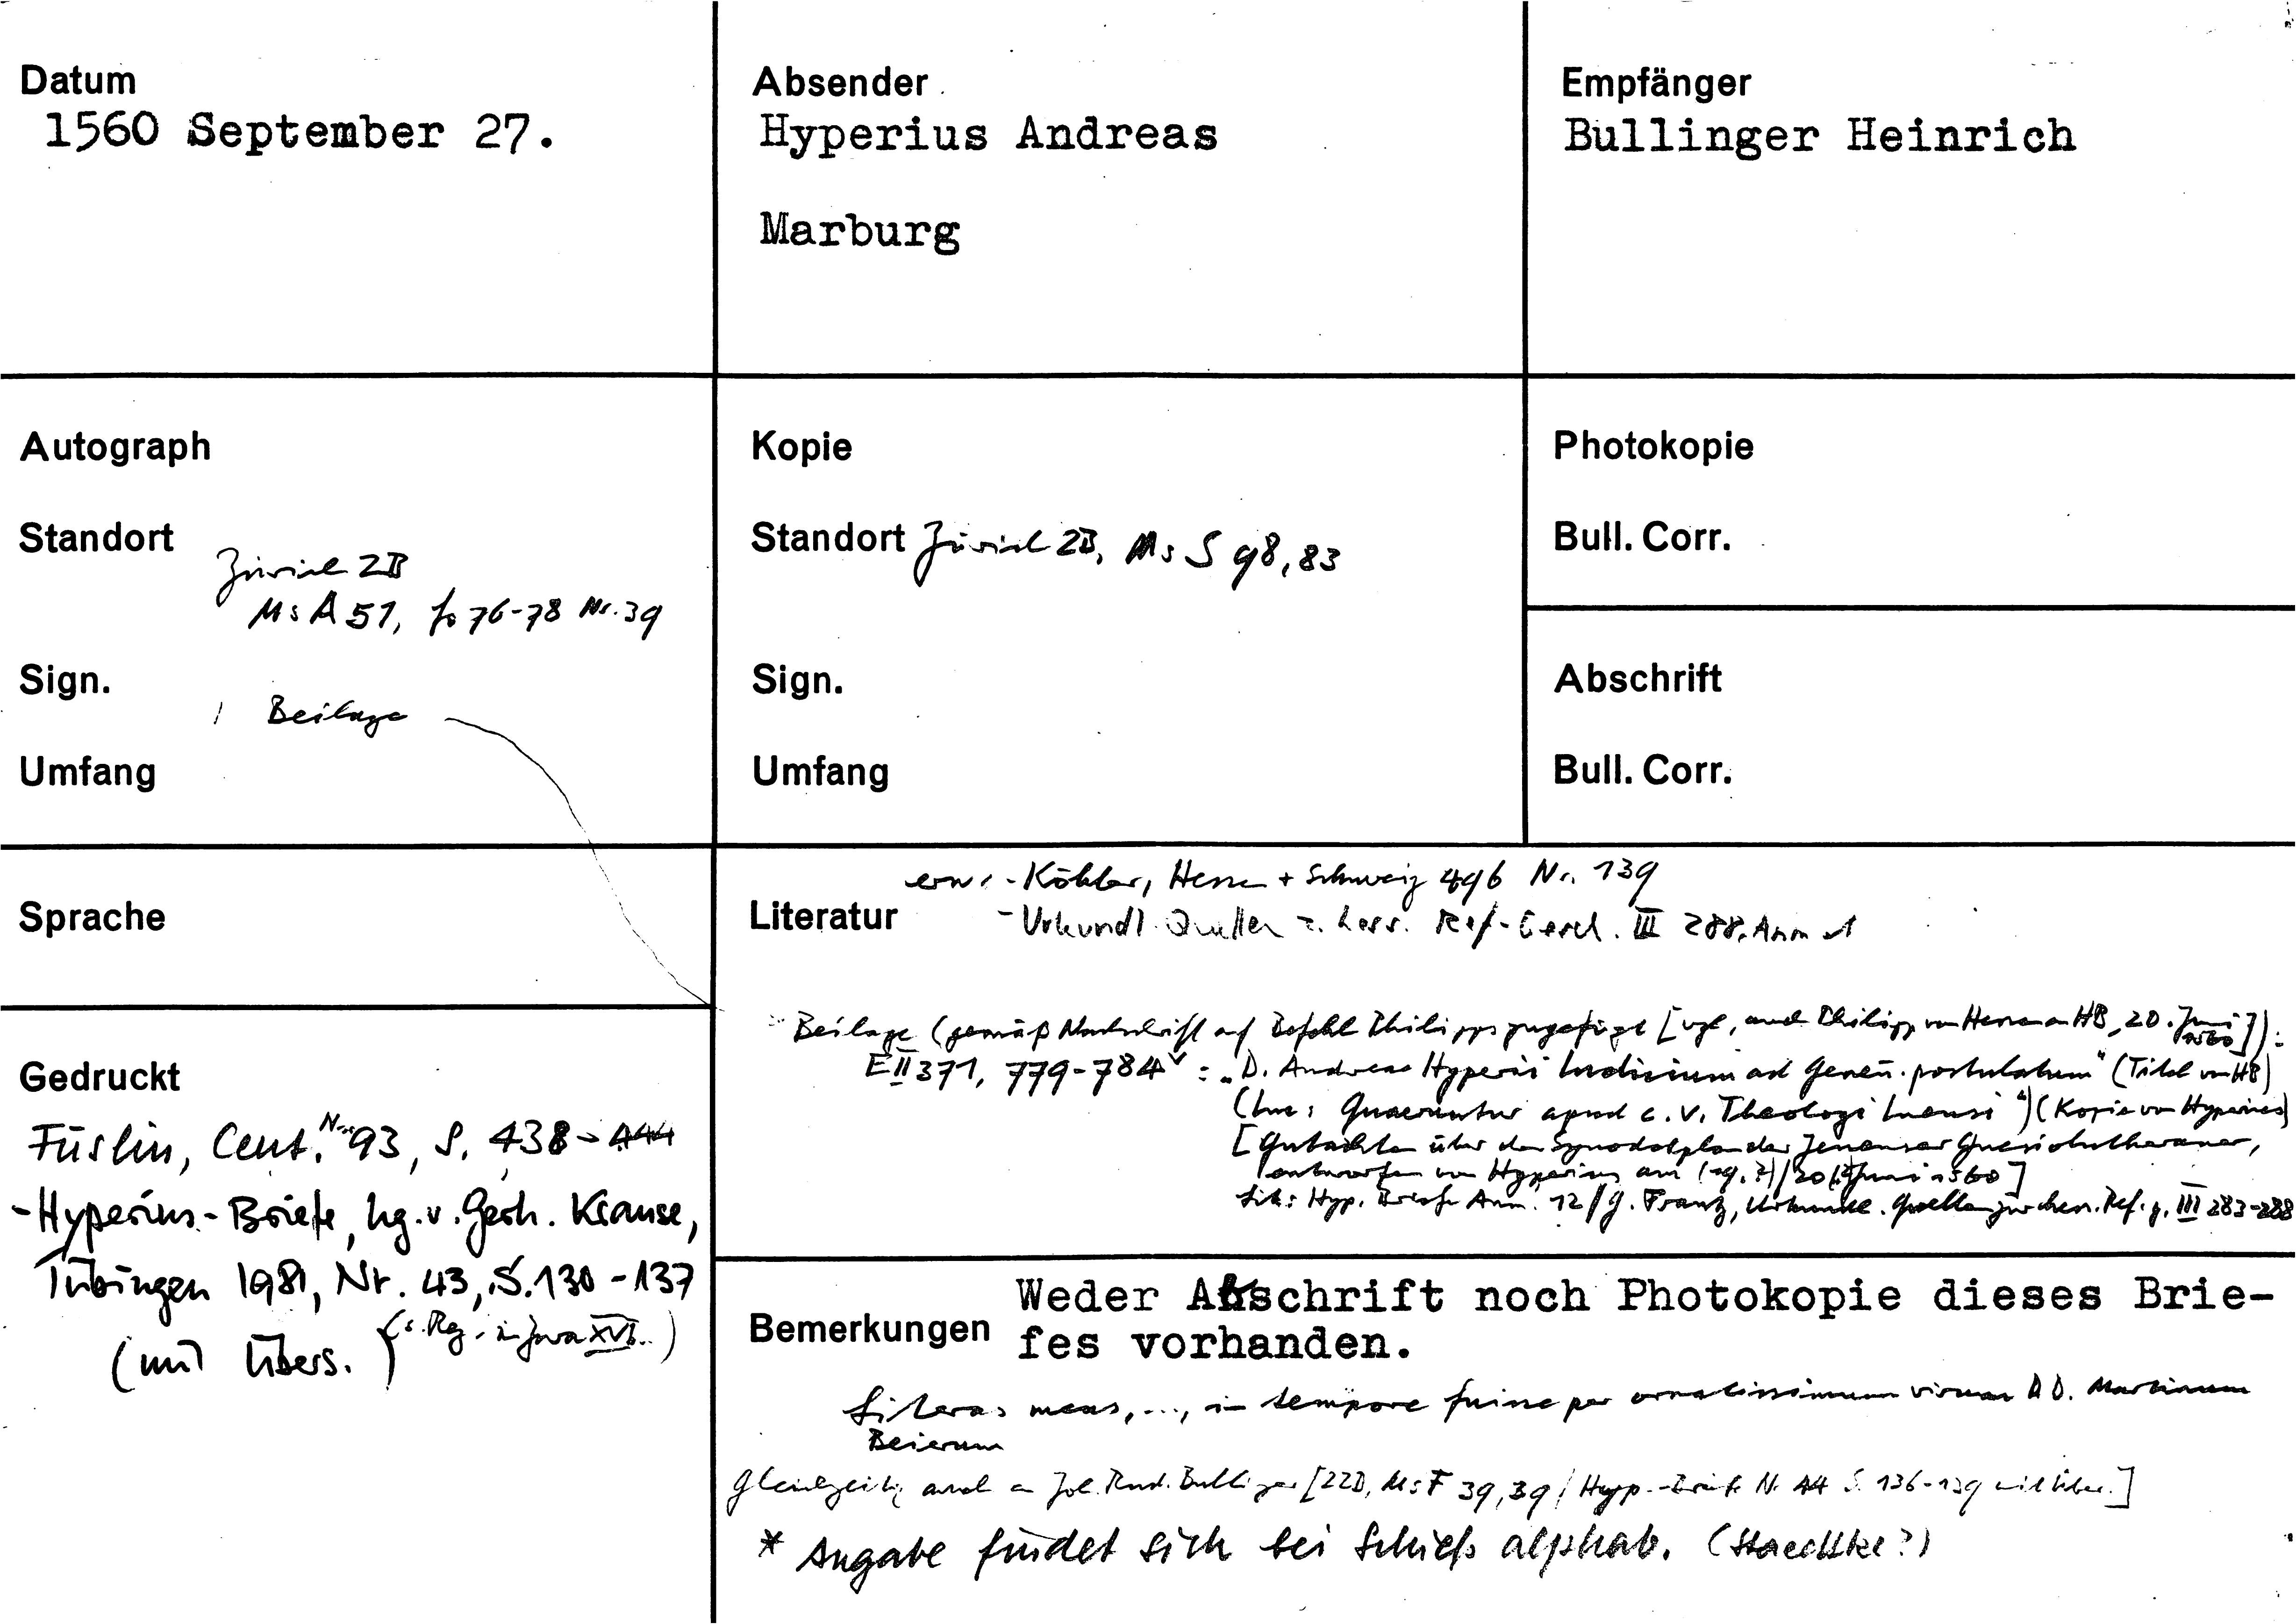 Datum
1560 September 27.
Absender
Hyperius Andreas
Marburg
Empfänger
Bullinger Heinrich
Autograph
Standort
Zürich ZB
Ms A 51, fo 76-78 Nr. 39
Sign.
1 Beilage
Umfang
Kopie
Standort Zürich ZB, Ms S 98, 83
Sign.
Umfang
Photokopie
Bull. Corr.
Abschrift
Bull. Corr.
Sprache
Gedruckt
Füslin, Cent. Nr. 93, S. 438-444
-Hyperius-Briefe, hg. v. Gerh. Krause,
Tübingen 1981, Nr. 43, S. 130-137
(mit Übers.) (s. Reg. in Zwa XVI..)
erw: - Köhler, Hessen + Schweiz 496 Nr. 139
Literatur - Urkundl. Quellen z. hess. Ref-Gesch. III 288, Anm 1
Beilage (gemäß Nachschrift auf Befehl Philipps zugefügt [vgl. auch Philipp von Hessen an HB, 20. Juni 1560]):
E II 371, 779-784v : „D. Andreae Hyperii Iudicium ad Geneũ. postulatum" (Titel von HB)
(Inc: Quaeruntur apud c. v. Theologi Ienensi") (Kopie von Hyperius)
[Gutachten über den Synodalplan der Jenenser Gnesiolutheraner,
entworfen von Hyperius am (19. ?)/20. Juni 1560]
Lit: Hyp. Briefe Anm. 12 / G. Franz, Urkundl. Quellen zur hess. Ref. g. III 283-288
Bemerkungen
Weder Abschrift noch Photokopie dieses Brie-
fes vorhanden.
Literas meas, ..., in tempore fuisse per ornatissimum virum D D. Martinum
Beierum
Gleichzeitig auch an Joh. Rud. Bullinger [ZZB, Ms F 39, 39 / Hyp.-Briefe Nr. 44 S. 136-139 mit Übers.]
* Angabe findet sich bei Schieß alphab. (Staedtke?)